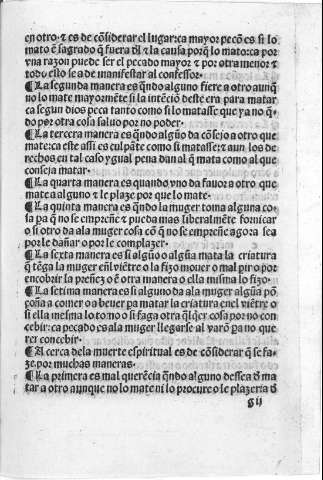 en otro. ⁊ es de cõsiderar el lugar: ca mayor pecõ es si lo
mato ẽ sagrado q̃ fuera dł ⁊ la causa porq̃ lo mato: ca por
vna razon puede ser el pecado mayor ⁊ por otra menor ⁊
todo esto se a de manifestar al confessor.
¶ La segunda manera es qñdo alguno fiere a otro aunq̃
no lo mate mayormẽte si la intẽciõ deste era para matar
ca segun dios peca tanto como si lo matasse que ya no q̃-
do por otra cosa saluo por no poder.
¶ La tercera manera es qñdo algũo da cõsejo a otro que
mate: ca este assi es culpãte como si matasse: ⁊ aun los de
rechos en tal caso ygual pena dan al q̃ mata como al que
conseja matar.
¶ La quarta manera es quando vno da fauor a otro que
mate a alguno ⁊ le plaze por que lo mate.
¶ La quinta manera es qñdo la muger toma alguna co-
sa pa q̃ no se empreñe ⁊ pueda mas liberalmẽte fornicar
o si otro da ala muger cosa cõ q̃ no se empreñe agora sea
por le dañar o por le complazer.
¶ La sexta manera es si algũo o algũa mata la criatura
q̃ tẽga la muger eñl viẽtre o la fizo mouer o mal pario por
encobrir la preñez o ẽ otra manera o ella misma lo fizo.
¶ La setima manera es si alguno da ala muger algũa põ
çoña a comer o a beuer pa matar la criatura enel viẽtre o
si ella mesma lo tomo o si faga otra q̃lq̃er cosa por no con
cebir: ca pecado es ala muger llegarse al varõ pa no que
rer concebir.
¶ Acerca dela muerte espiritual es de cõsiderar q̃ se fa-
ze por muchas maneras.
¶ La primera es mal querẽcia qñdo alguno dessea đ ma
tar a otro aunque no lo mate ni lo procure o le plazeria đ
g ij